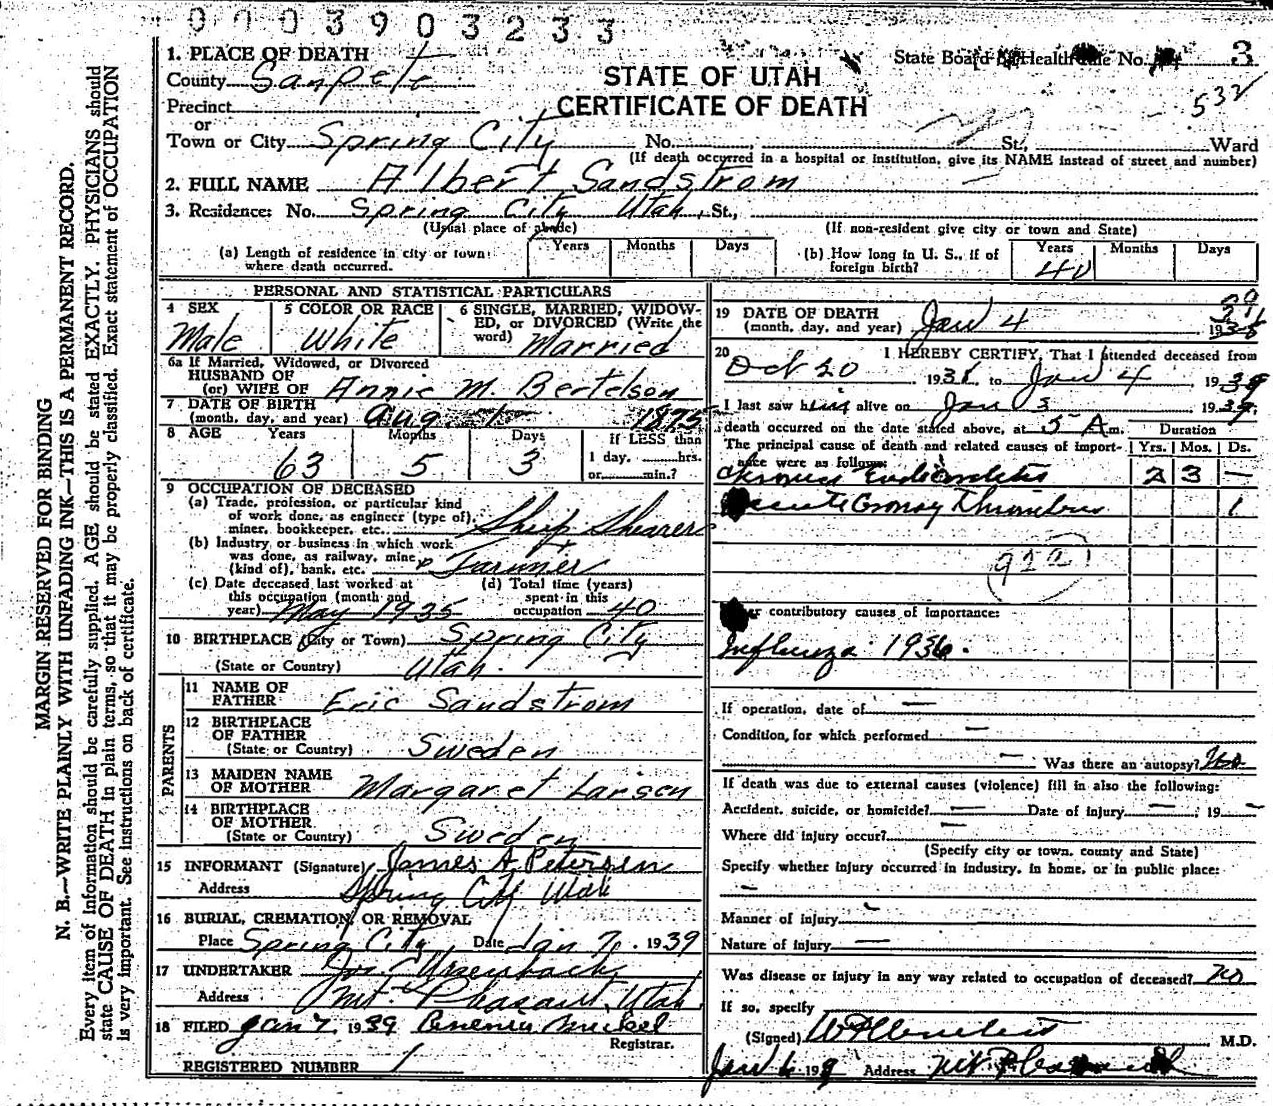 0003903233
1. PLACE OF DEATH
County Sanpete
State Board of Health File No. 3
STATE OF UTAH
CERTIFICATE OF DEATH
532
Precinct
or
Town or City Spring City No. St., Ward
(If death occurred in a hospital or institution, give its NAME instead of street and number)
2. FULL NAME Albert Sandstrom
3. Residence: No. Spring City Utah, St.,
(Usual place of abode) (If non-resident give city or town and State)
(a) Length of residence in city or town where death occurred. Years Months Days
(b) How long in U. S., if of foreign birth? Years 40 Months Days
PERSONAL AND STATISTICAL PARTICULARS
4 SEX Male
5 COLOR OR RACE White
6 SINGLE, MARRIED, WIDOWED, or DIVORCED (Write the word) Married
6a If Married, Widowed, or Divorced
HUSBAND OF
(or) WIFE OF Annie M. Bertelson
7 DATE OF BIRTH
(month, day, and year) Aug. 1875
8 AGE Years 63 Months 5 Days 3 If LESS than
1 day, hrs.
or min.?
9 OCCUPATION OF DECEASED
(a) Trade, profession, or particular kind
of work done, as engineer (type of),
miner, bookkeeper, etc. Sheep Shearer
(b) Industry or business in which work
was done, as railway, mine
(kind of), bank, etc. & Farmer
(c) Date deceased last worked at
this occupation (month and
year) May 1935
(d) Total time (years)
spent in this
occupation 40
10 BIRTHPLACE (City or Town) Spring City
(State or Country) Utah.
PARENTS
11 NAME OF
FATHER Eric Sandstrom
12 BIRTHPLACE
OF FATHER
(State or Country) Sweden
13 MAIDEN NAME
OF MOTHER Margaret Larsen
14 BIRTHPLACE
OF MOTHER
(State or Country) Sweden
15 INFORMANT (Signature) James A Petersen
Address Spring City Utah
16 BURIAL, CREMATION, OR REMOVAL
Place Spring City, Date Jan 7, 1939
17 UNDERTAKER
Address Mt. Pleasant, Utah.
18 FILED Jan 7, 1939
Registrar.
REGISTERED NUMBER 1
19 DATE OF DEATH
(month, day, and year) Jan 4 1939
20 I HEREBY CERTIFY, That I attended deceased from
Oct 20 1938, to Jan 4, 1939
I last saw him alive on Jan 3 1939,
death occurred on the date stated above, at 5 A m. Duration
The principal cause of death and related causes of importance were as follows: Yrs. Mos. Ds.
Chronic Endocarditis 2 3 —
Acute Coronary Thrombus 1
Other contributory causes of importance:
Influenza 1936.
If operation, date of —
Condition, for which performed —
— Was there an autopsy? No
If death was due to external causes (violence) fill in also the following:
Accident, suicide, or homicide? — Date of injury —, 19 —
Where did injury occur? —
(Specify city or town, county and State)
Specify whether injury occurred in industry, in home, or in public place:
—
Manner of injury
Nature of injury —
Was disease or injury in any way related to occupation of deceased? no
If so, specify
(Signed) M.D.
Jan 6 199 Address Mt. Pleasant
MARGIN RESERVED FOR BINDING
N. B.—WRITE PLAINLY WITH UNFADING INK—THIS IS A PERMANENT RECORD.
Every item of information should be carefully supplied. AGE should be stated EXACTLY. PHYSICIANS should
state CAUSE OF DEATH in plain terms, so that it may be properly classified. Exact statement of OCCUPATION
is very important. See instructions on back of certificate.